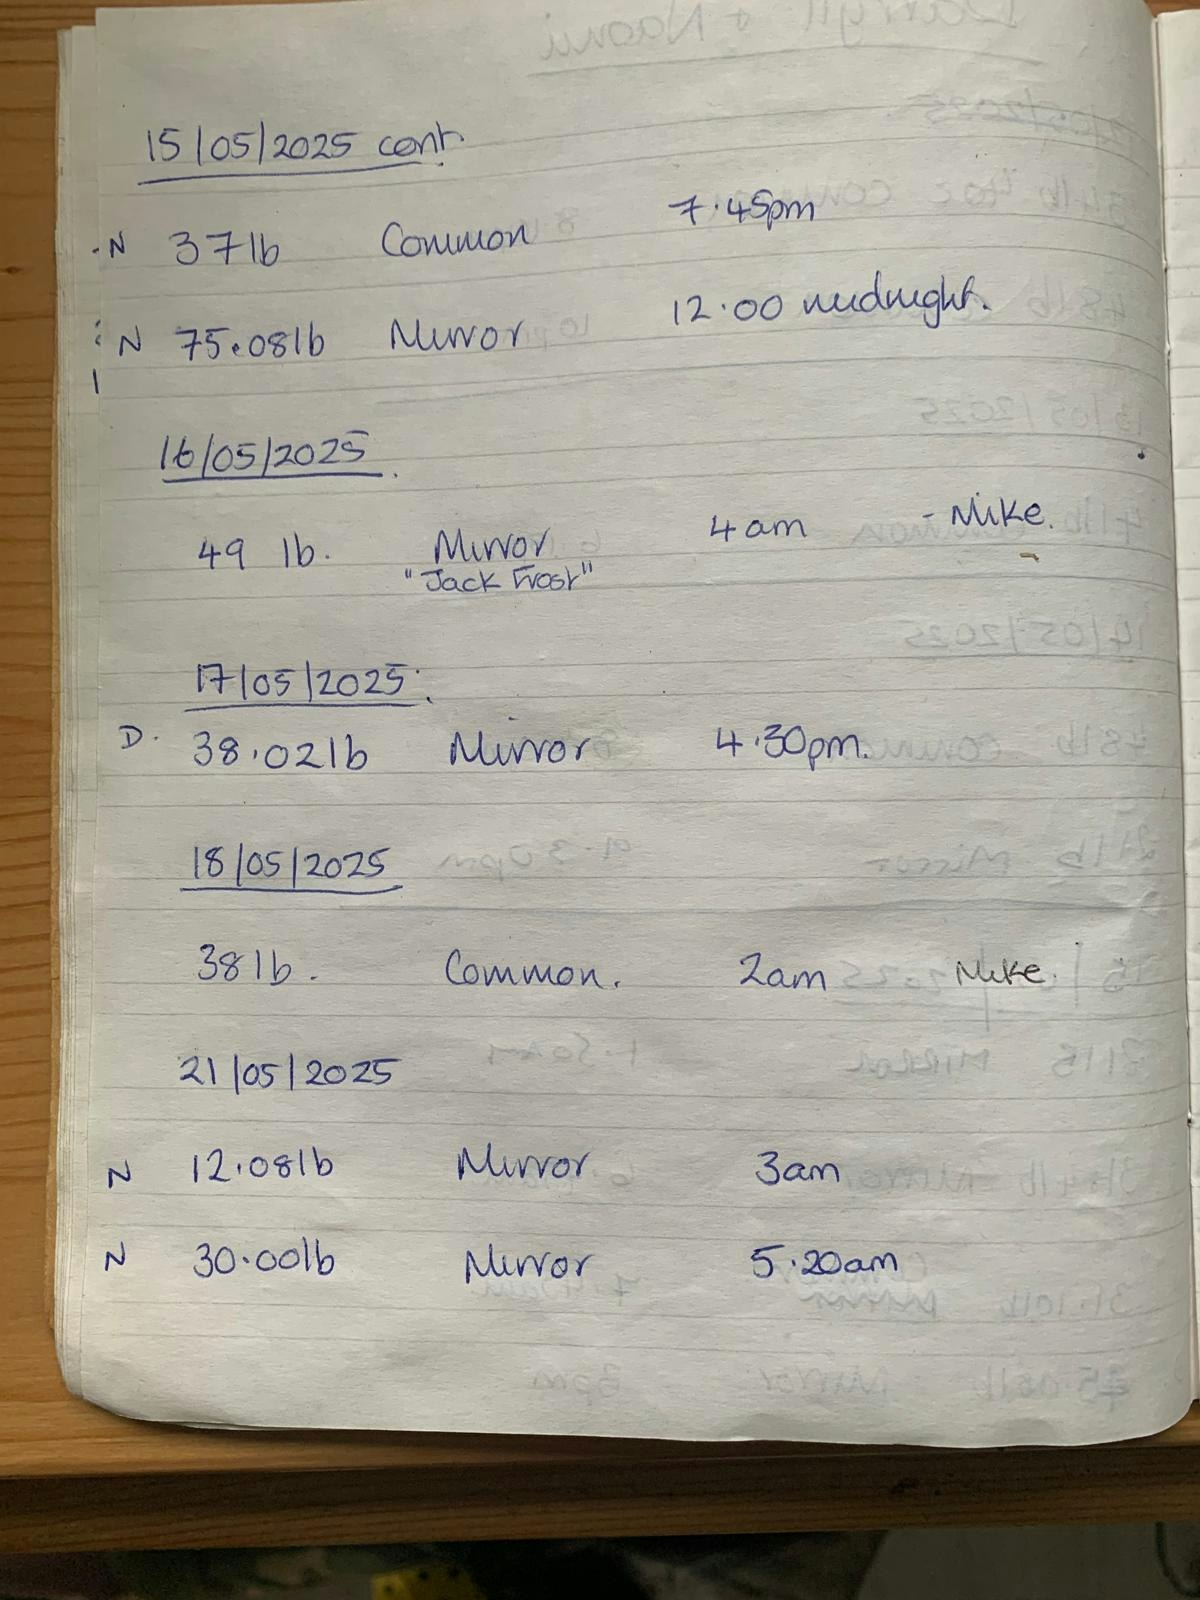 15/05/2025 cont.
N 37lb Common 7.45pm
N 75.08lb Mirror 12.00 midnight.
16/05/2025
49 lb. Mirror 4am - Mike.
"Jack Frost"
17/05/2025
D. 38.02lb Mirror 4.30pm.
18/05/2025
38lb. Common. 2am Mike.
21/05/2025
N 12.08lb Mirror 3am
N 30.00lb Mirror 5.20am